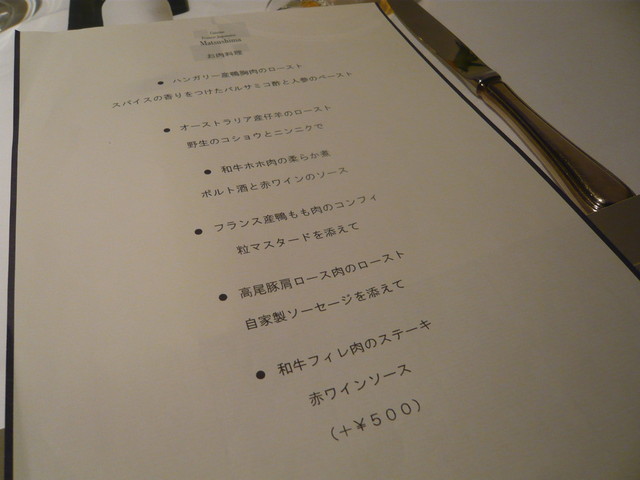 Matsushima
お肉料理
● ハンガリー産鴨胸肉のロースト
スパイスの香りをつけたバルサミコ酢と人参のペースト
● オーストラリア産仔羊のロースト
野生のコショウとニンニクで
● 和牛ホホ肉の柔らか煮
ポルト酒と赤ワインのソース
● フランス産鴨もも肉のコンフィ
粒マスタードを添えて
● 高尾豚肩ロース肉のロースト
自家製ソーセージを添えて
● 和牛フィレ肉のステーキ
赤ワインソース
(+¥500)